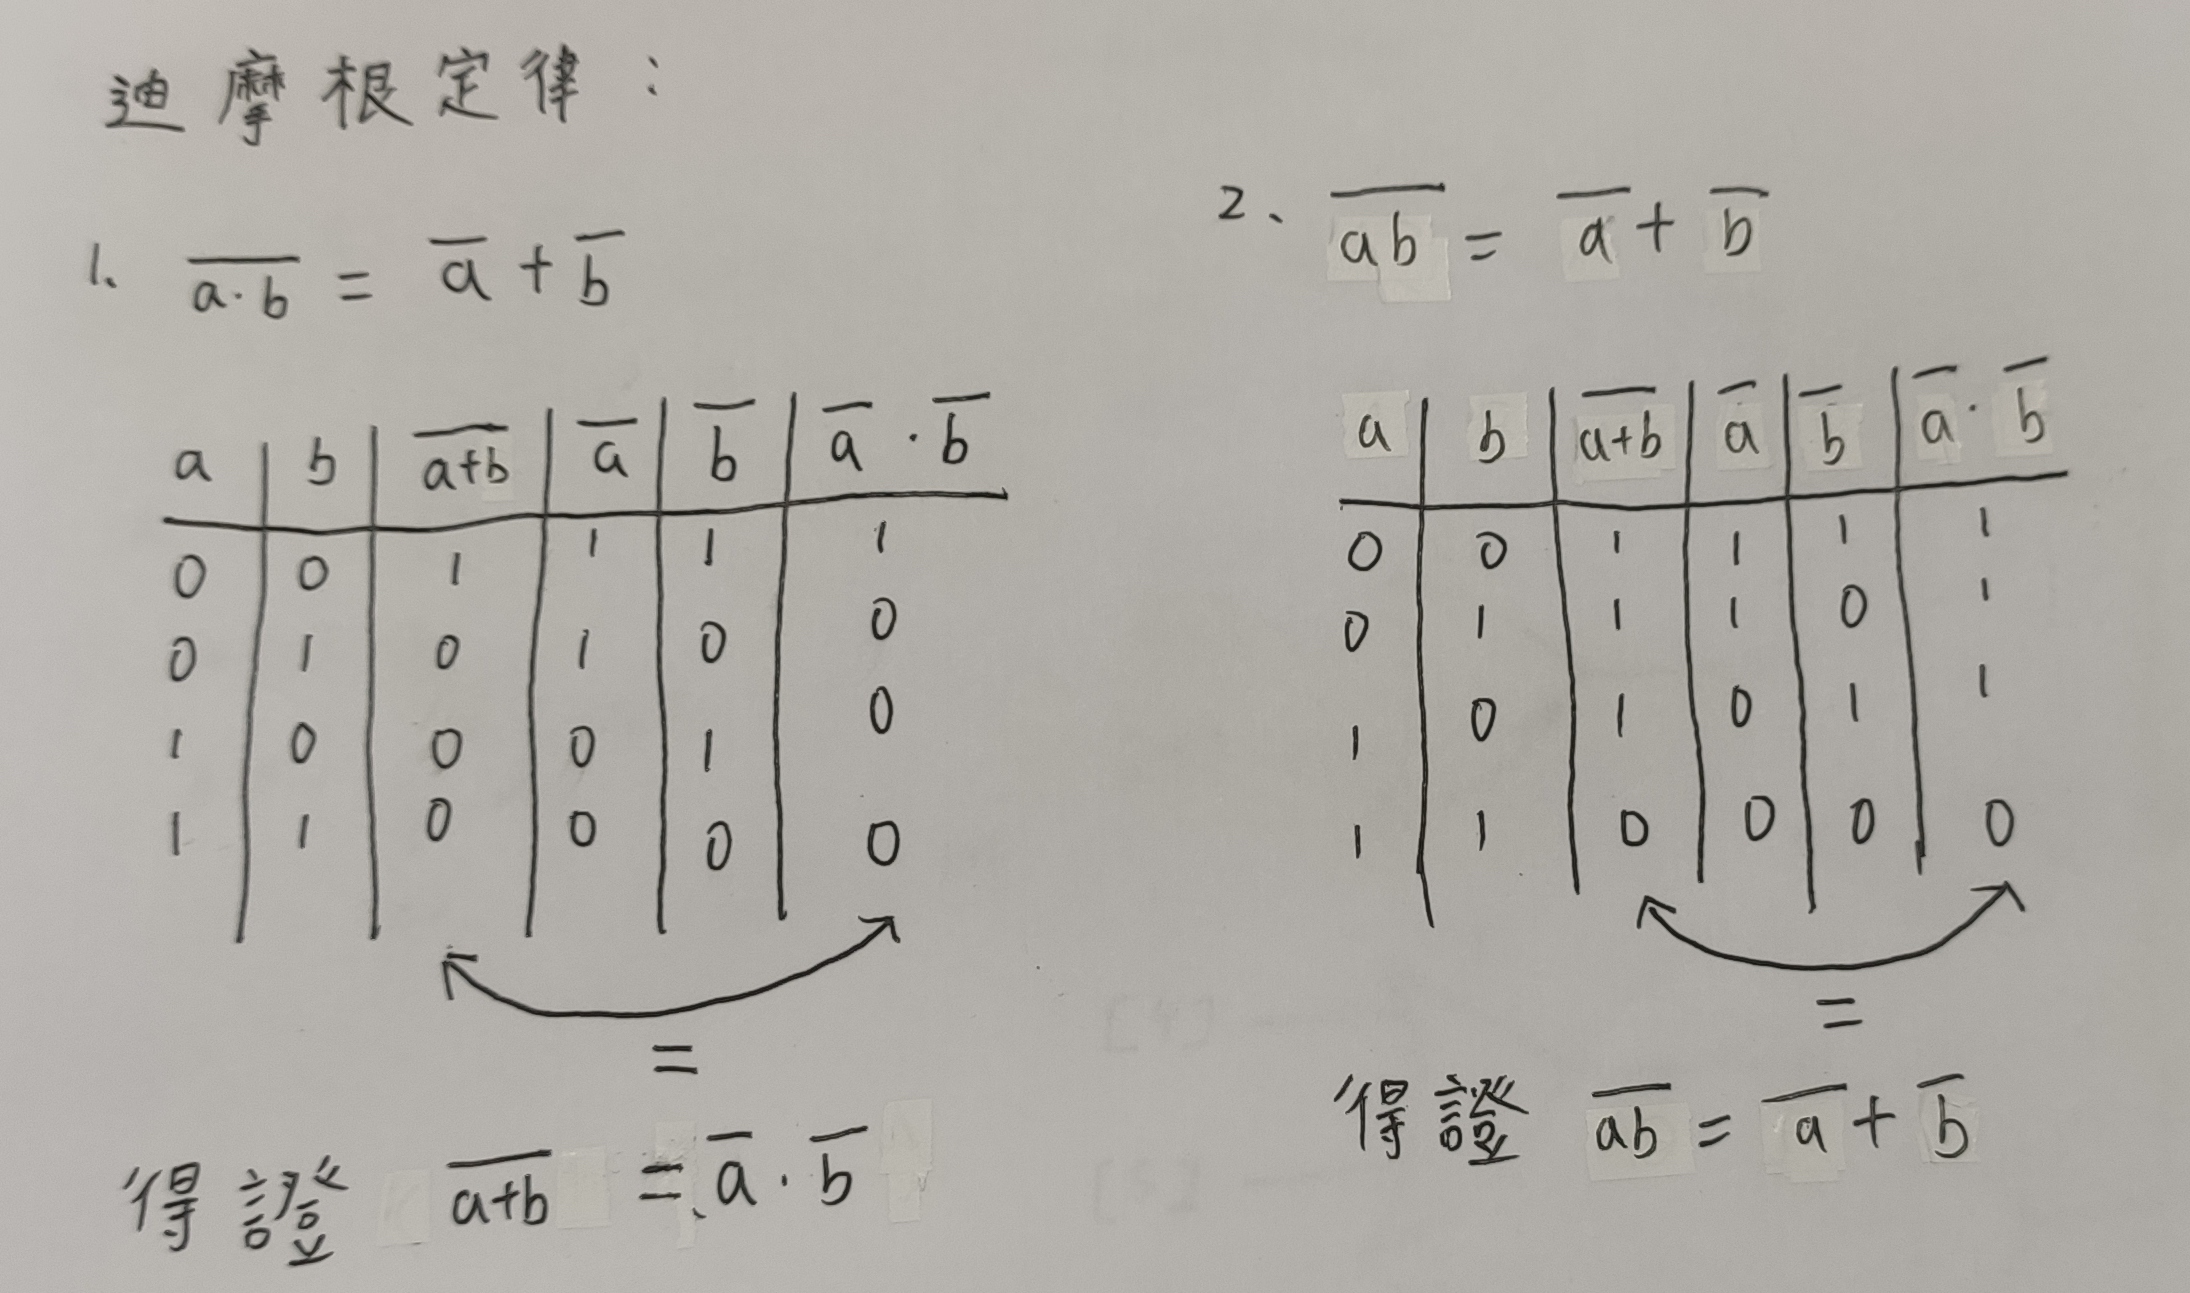 迪摩根定律：
1、 a̅·̅b̅ = a̅ + b̅
a b a̅+̅b̅ a̅ b̅ a̅ · b̅
0 0 1 1 1 1
0 1 0 1 0 0
1 0 0 0 1 0
1 1 0 0 0 0
=
得證 a̅+̅b̅ = a̅ · b̅
2、 a̅b̅ = a̅ + b̅
a b a̅+̅b̅ a̅ b̅ a̅ · b̅
0 0 1 1 1 1
0 1 1 1 0 1
1 0 1 0 1 1
1 1 0 0 0 0
=
得證 a̅b̅ = a̅ + b̅